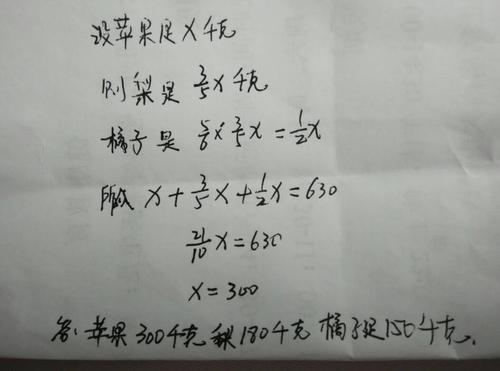 设苹果是x千克
则梨是 3/5 x千克
橘子是 5/6 × 3/5 x = 1/2 x
所以 x + 3/5 x + 1/2 x = 630
21/10 x = 630
x = 300
答:苹果300千克 梨180千克 橘子是150千克.